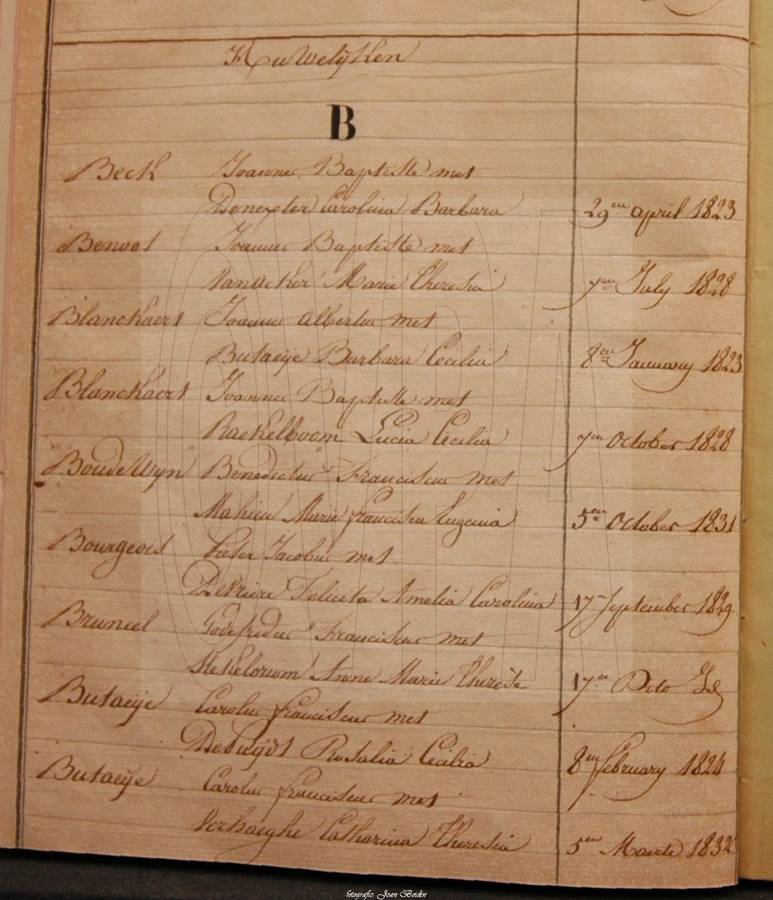 Huwelijken
B
Beck Joannes Baptiste met
Carolina Barbara 29en april 1823
Benoot Joannes Baptiste met
Vanacker Marie Theresia 7en July 1828
Blanckaert Joannes Albertus met
Butaeije Barbara Cecilia 8en January 1823
Blanckaert Joannes Baptiste met
Raekelboom Lucia Cecilia 7en October 1828
BoudeWyn Benedictus Franciscus met
Mahieu Marie francisca Eugenia 5en October 1831
Bourgeois Pieter Jacobus met
Felicita Amelia Carolina 17en September 1829
Bruneel Godefridus Franciscus met
Stekelorum Anne Marie Therese 17en Dito Id
Butaeije Carolus franciscus met
Debuydt Rosalia Cecilia 8en february 1824
Butaeije Carolus franciscus met
Verhaeghe Catharina Theresia 5en Maerte 1832
fotografie: Joan Bedin